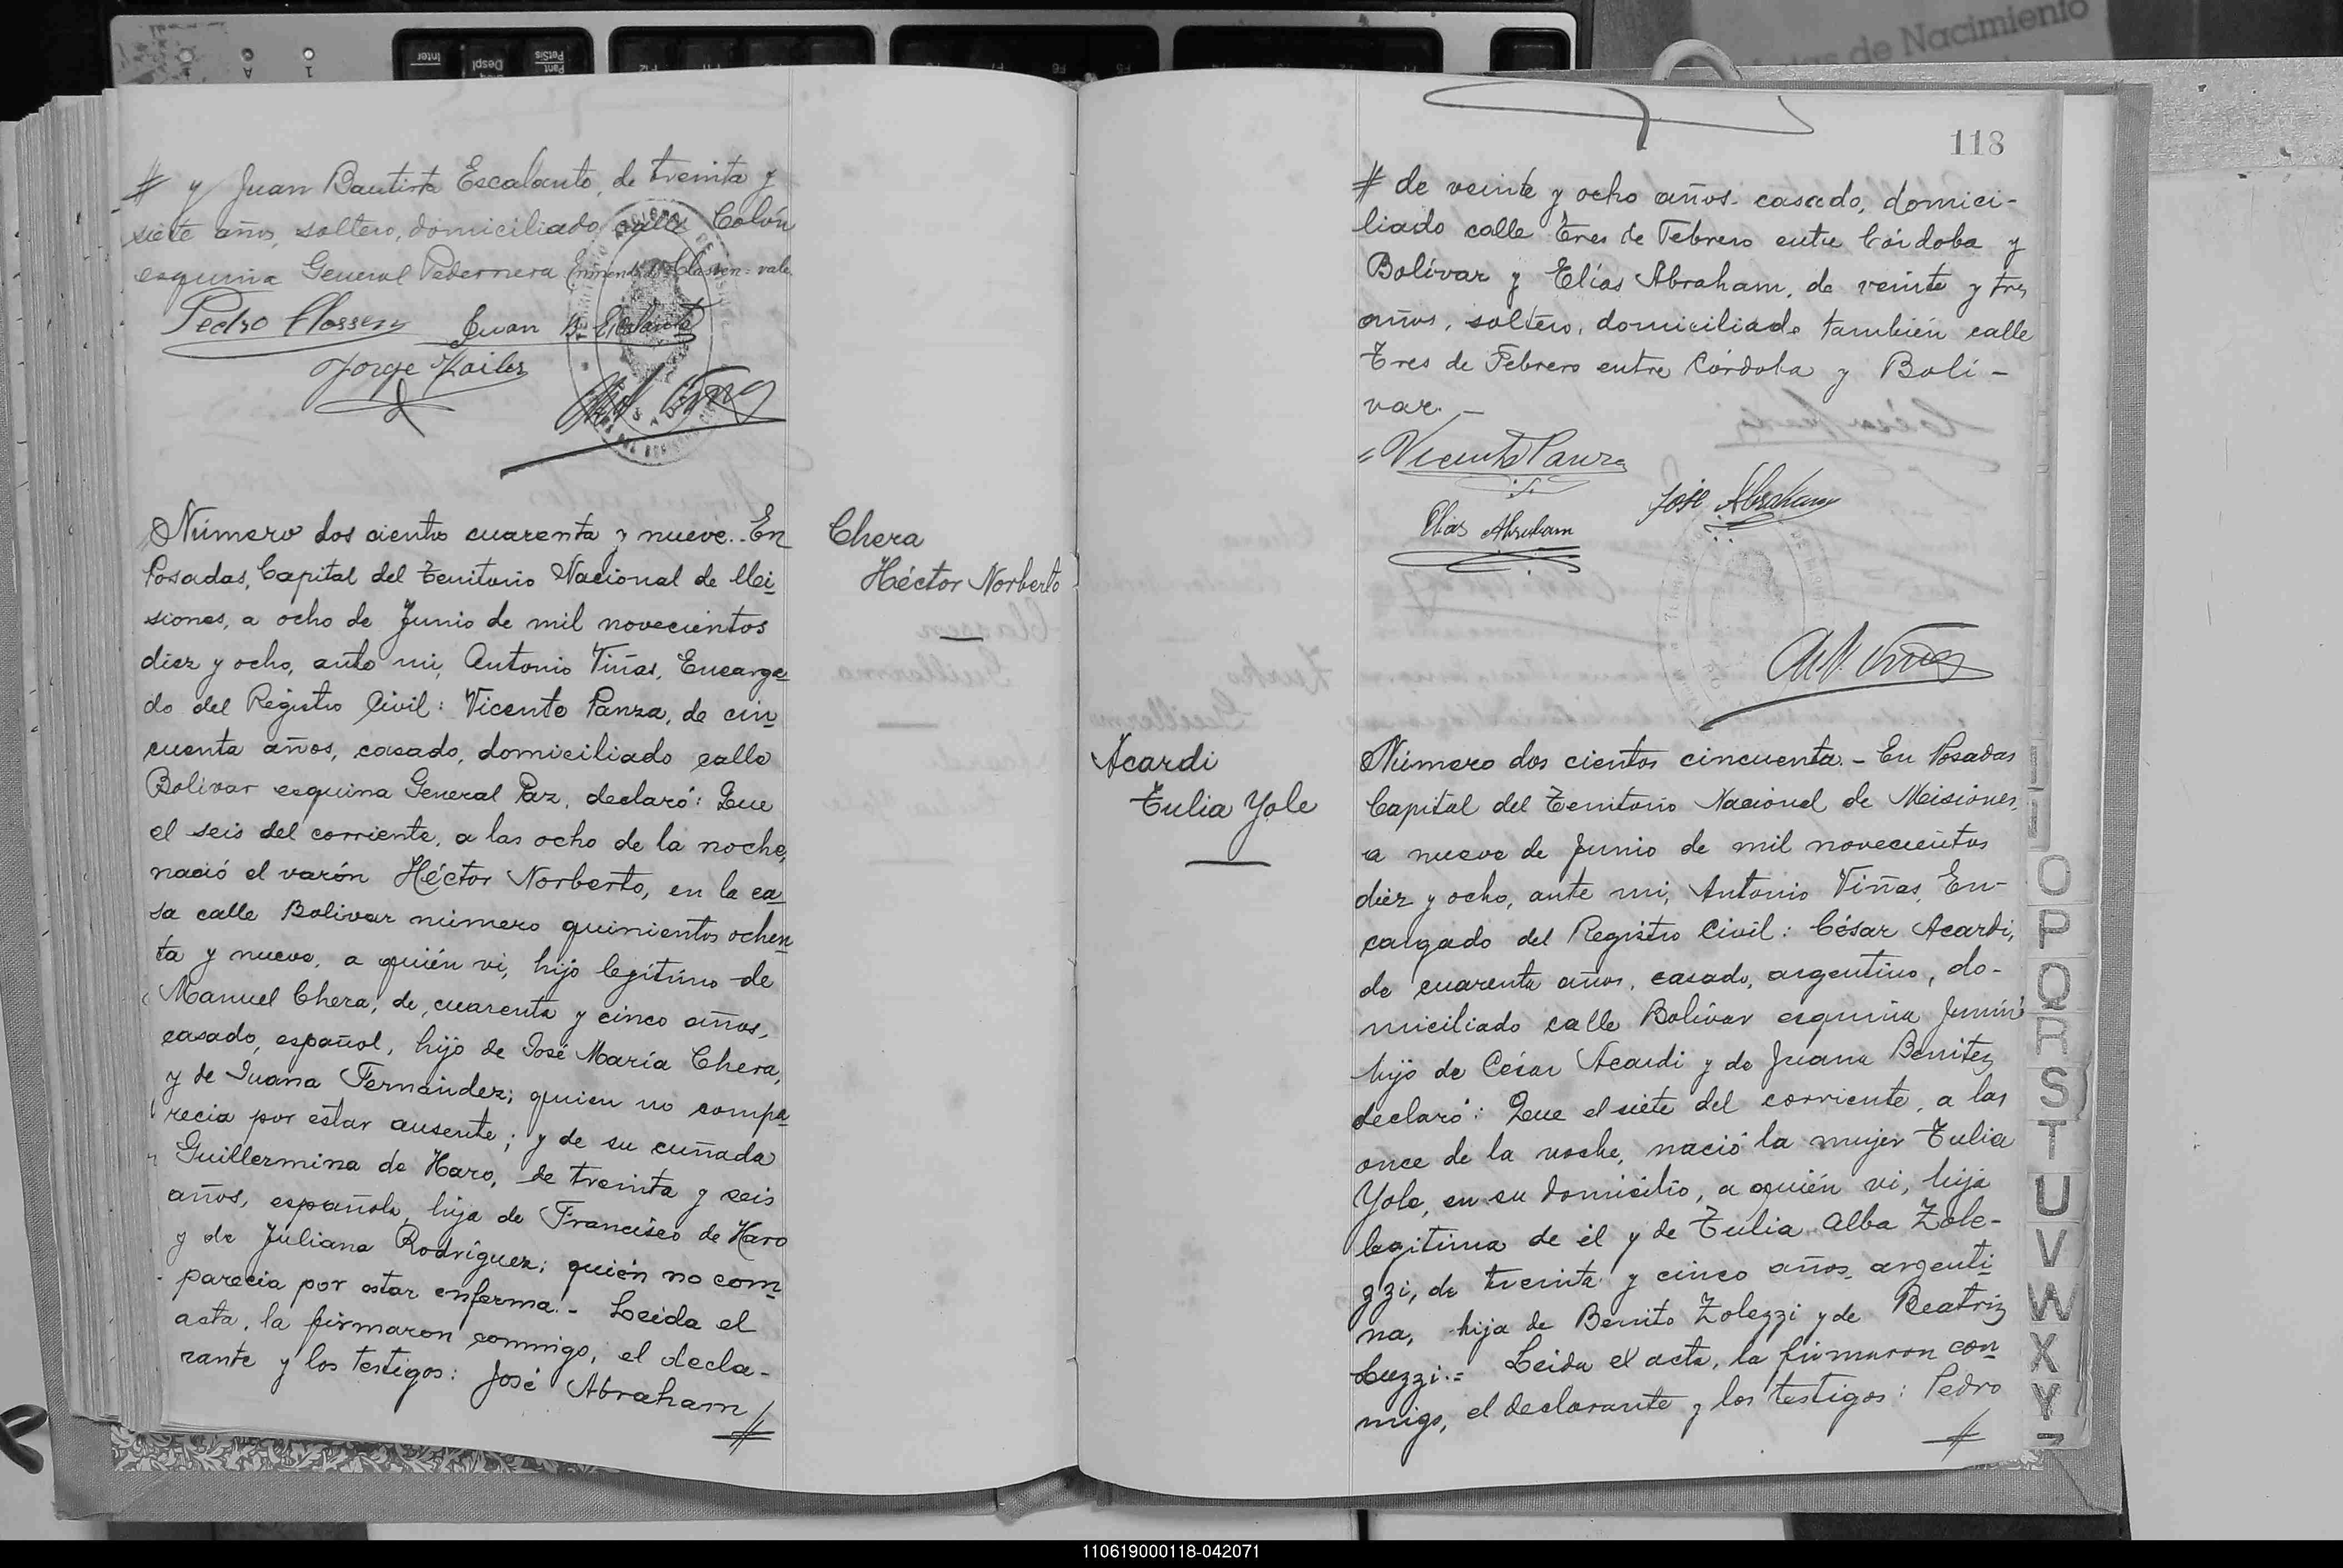 # y Juan Bautista Escalante, de treinta y
siete años, soltero, domiciliado calle Colón
esquina General Pedernera Enmendado Classen = vale
Pedro Classen Juan B. Escalante
Jorge
Número dos cientos cuarenta y nueve.. En
Posadas, Capital del Territorio Nacional de Mi
siones, a ocho de Junio de mil novecientos
diez y ocho, ante mi, Antonio Viñas, Encarga
do del Registro Civil: Vicente Panza, de cin
cuenta años, casado, domiciliado calle
Bolívar esquina General Paz, declaró: Que
el seis del corriente, a las ocho de la noche,
nació el varón Héctor Norberto, en la ca
sa calle Bolivar número quinientos ochen
ta y nueve, a quién vi, hijo legítimo de
Manuel Chera, de, cuarenta y cinco años,
casado, español, hijo de José María Chera,
y de Juana Fernández; quien no compa
recia por estar ausente; y de su cuñada
Guillermina de Haro, de treinta y seis
años, española, hija de Francisco de Haro
y de Juliana Rodríguez; quién no com
parecia por estar enferma.- Leida el
acta, la firmaron conmigo, el decla-
rante y los testigos: José Abraham
#
Chera
Héctor Norberto
118
# de veinte y ocho años. casado, domici-
liado calle Tres de Febrero entre Córdoba y
Bolívar y Elías Abraham, de veinte y tres
años, soltero, domiciliado también calle
Tres de Febrero entre Córdoba y Bolí-
var. -
Vicente Panza
José Abraham
Elias Abraham
Acardi
Tulia Yole
Número dos cientos cincuenta. - En Posadas
Capital del Territorio Nacional de Misiones,
a nueve de Junio de mil novecientos
diez y ocho, ante mi, Antonio Viñas, En-
cargado del Registro Civil: César Acardi,
de cuarenta años, casado, argentino, do-
miciliado calle Bolívar esquina Junín
hijo de César Acardi y de Juana Benitez
declaró: Que el siete del corriente, a las
once de la noche, nació la mujer Tulia
Yole, en su domicilio, a quién vi, hija
legítima de él y de Tulia Alba Zole-
zzi, de treinta y cinco años, argenti
na, hija de Benito Zolezzi y de Beatriz
Luzzi.= Leida el acta, la firmaron con
migo, el declarante y los testigos: Pedro
#
O
P
Q
R
S
T
U
V
W
X
Y
Z
de Nacimiento
110619000118-042071